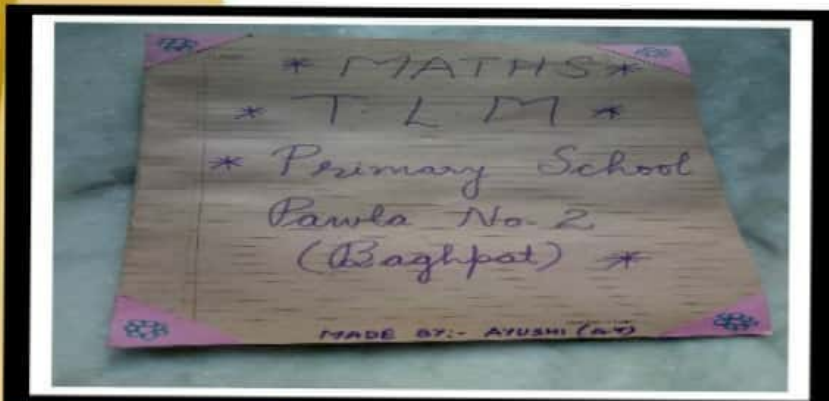 * MATHS *
* T. L. M *
* Primary School
Pawla No. 2
(Baghpat) *
MADE BY:- AYUSHI (A.T)